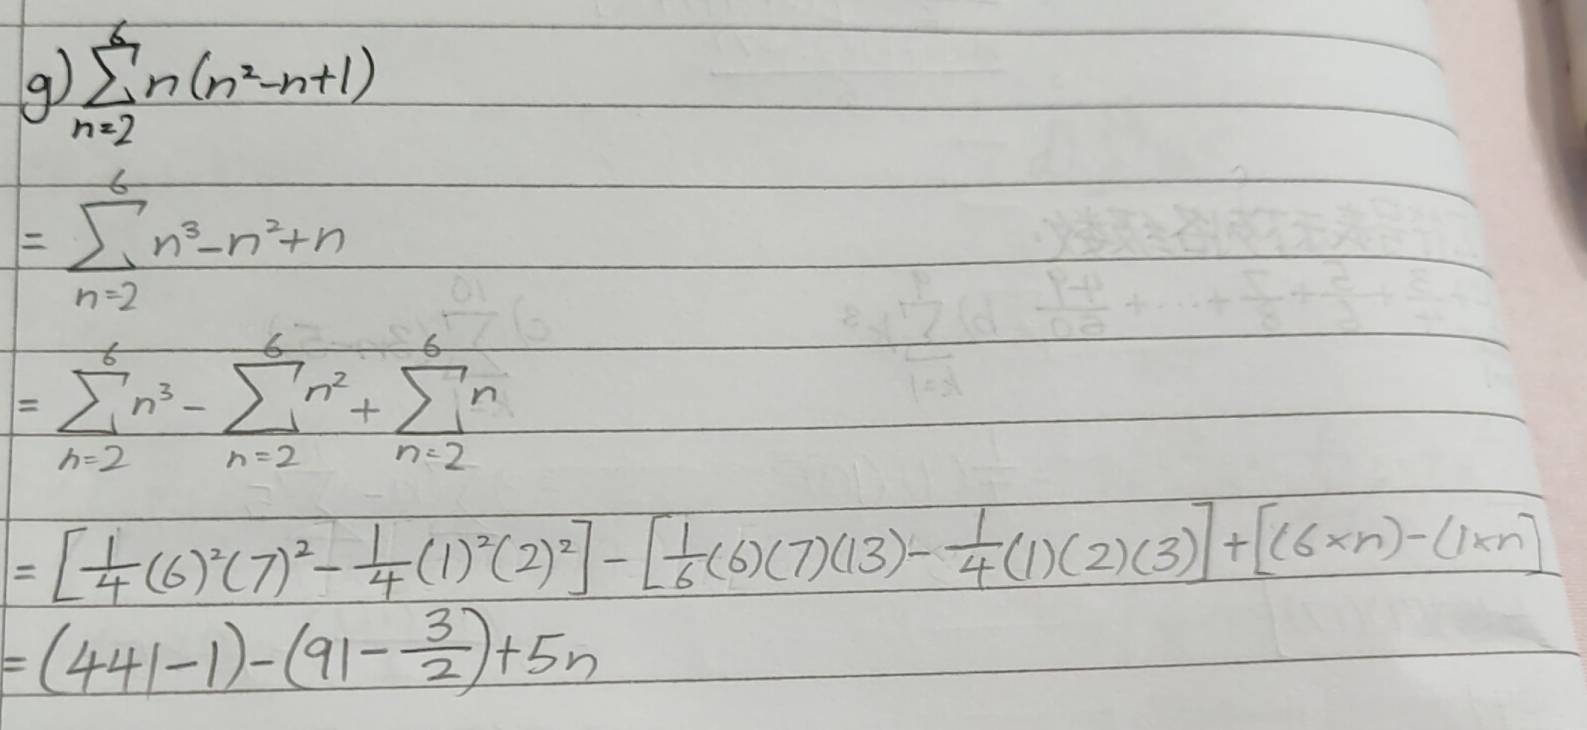 g) \sum_{n=2}^{6} n(n²-n+1)
= \sum_{n=2}^{6} n³-n²+n
= \sum_{n=2}^{6} n³ - \sum_{n=2}^{6} n² + \sum_{n=2}^{6} n
= [\frac{1}{4}(6)²(7)² - \frac{1}{4}(1)²(2)²] - [\frac{1}{6}(6)(7)(13) - \frac{1}{4}(1)(2)(3)] + [(6×n)-(1×n]
= (441-1)-(91-\frac{3}{2})+5n